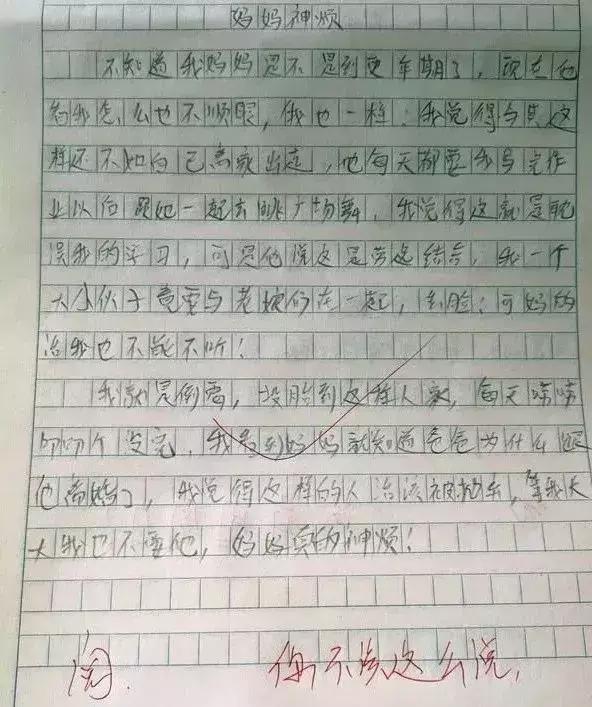 妈妈神烦
不知道我妈妈是不是到更年期了，现在他
看我怎么也不顺眼，我也一样：我觉得与其这
样还不如自己离家出走，他每天都要我写完作
业以后跟她一起去跳广场舞，我觉得这就是耽
误我的学习，可是他说这是劳逸结合，我一个
大小伙子竟要与老娘们在一起，丢脸；可妈的
治我也不能不听！
我就是倒霉，投胎到这种人家，每天唠唠
叨叨个没完，我看到妈妈就知道爸爸为什么跟
他离婚了，我觉得这样的人治该被抛弃，等我长
大我也不要他，妈妈真的神烦！
阅. 你不该这么说.